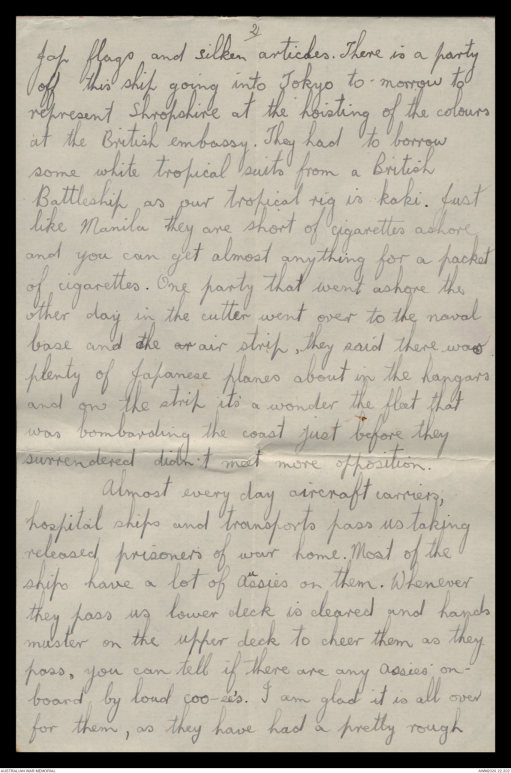 2
Jap flags and silken articles. There is a party
off this ship going into Tokyo to-morrow to
represent Shropshire at the hoisting of the colours
at the British embassy. They had to borrow
some white tropical suits from a British
Battleship as our tropical rig is kaki. Just
like Manila they are short of cigarettes ashore
and you can get almost anything for a packet
of cigarettes. One party that went ashore the
other day in the cutter went over to the naval
base and the or air strip, they said there was
plenty of Japanese planes about in the hangars
and on the strip it's a wonder the fleet that
was bombarding the coast just before they
surrendered didn't meet more opposition.
Almost every day aircraft carriers,
hospital ships and transports pass us taking
released prisoners of war home. Most of the
ships have a lot of Aussies on them. Whenever
they pass us lower deck is cleared and hands
muster on the upper deck to cheer them as they
pass, you can tell if there are any assies on-
board by loud coo-ee's. I am glad it is all over
for them, as they have had a pretty rough
AUSTRALIAN WAR MEMORIAL